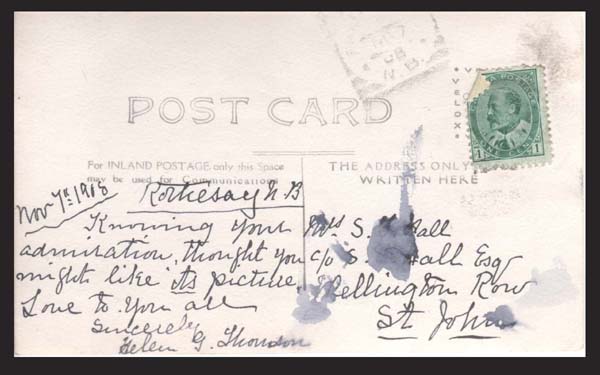 08
N.B.
POST CARD
For INLAND POSTAGE only this Space
may be used for Communications
THE ADDRESS ONLY
WRITTEN HERE
1 1
Nov 7th 1908
Rothesay N.B
Knowing your
admiration, thought you
might like its picture
Love to you all
Sincerely
Helen G. Thomson
Mrs S. Hall
c/o S. Hall Esq
Wellington Row
St John